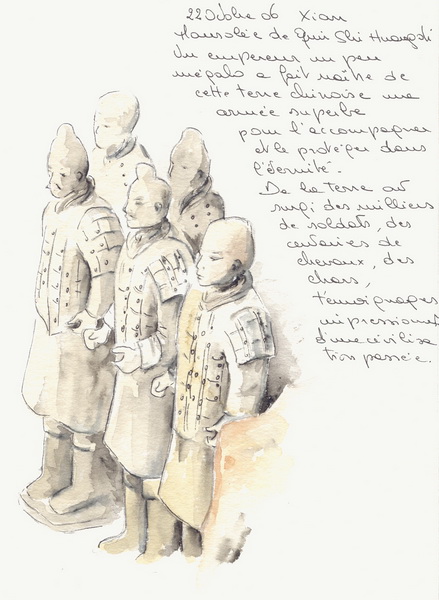 22 Octobre 06 Xian
Mausolée de Quin Shi Huangdi
Un empereur un peu
mégalo a fait naître de
cette terre chinoise une
armée superbe
pour l'accompagner
et le protéger dans
l'éternité.
De la terre ont
surgi des milliers
de soldats, des
centaines de
chevaux, des
chars,
témoignages
impressionnants
d'une civilisa
tion passée.